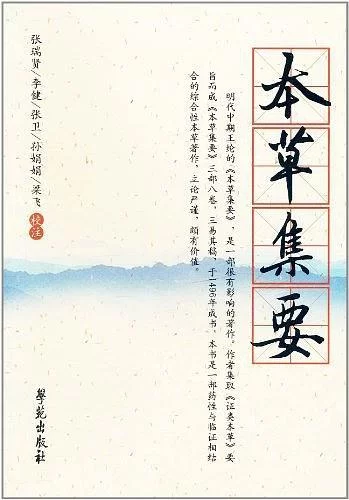 本草集要
明代中期王纶的《本草集要》，是一部很有影响的著作。作者集取《证类本草》要
旨而成《本草集要》三部八卷，三易其稿，于1496年成书。本书是一部药性与临证相结
合的综合性本草著作，立论严谨，颇有价值。
张瑞贤/李健/张卫/孙娟娟/梁飞 校注
學苑出版社